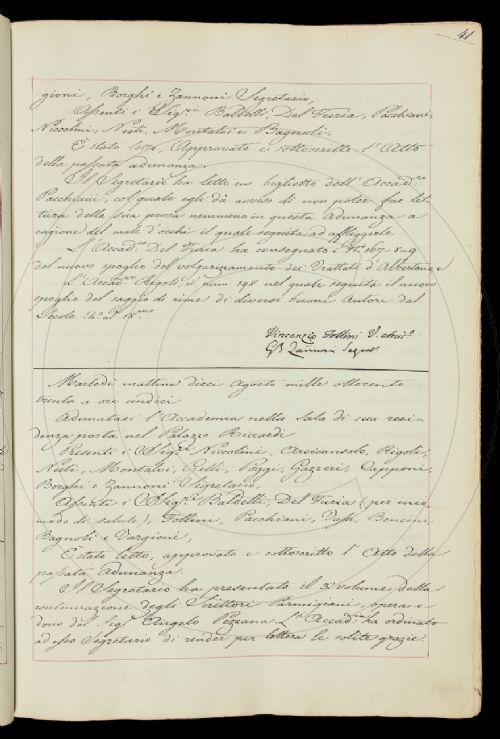 41
gioni, Borghi e Zannoni Segretario,
Assenti i Sigri Baldelli, Del Furia, Pacchiani,
Niccolini, Nesti, Montalvi e Bagnoli.
È stato letto, Approvato e sottoscritto l'Atto
della passata adunanza.
Il Segretario ha letto un biglietto dell'Accadco
Pacchiani, col quale egli dà avviso di non poter far let-
tura della sua prosa nemmeno in questa Adunanza a
cagione del male d'occhi il quale seguita ad affliggerlo.
L'Accadco Del Furia ha consegnato i Ni 167-8-9
del nuovo spoglio del volgarizzamento dei Trattati d'Albertano e
L'Accadco Rigoli, il num 198 nel quale seguita il nuovo
spoglio del saggio di rime di diversi buoni autori dal
Secolo 14o al 18mo
Vincenzio Follini V.
GB Zannoni Segrio
Martedì mattina dieci Agosto mille ottocento
trenta a ore undici
Adunatasi l'Accademia nella Sala di sua resi-
denza posta nel Palazzo Riccardi
Presenti i Sigri Niccolini, Arcionsolo, Rigoli,
Nesti, Montalvi, Gelli, Poggi, Gazzeri, Capponi,
Borghi e Zannoni Segretario,
Assenti i Sigri Baldelli, Del Furia (per inco-
modo di salute), Follini, Pacchiani, Bencini,
Bagnoli e Targioni,
È stato letto, approvato e sottoscritto l'Atto della
passata Adunanza
Il Segretario ha presentato il 3o volume della
continuazione degli Scrittori Parmigiani, opera e
dono del Sigr Angelo Pezzana. L'Accada ha ordinato
ad esso Segretario di render per lettera le solite grazie